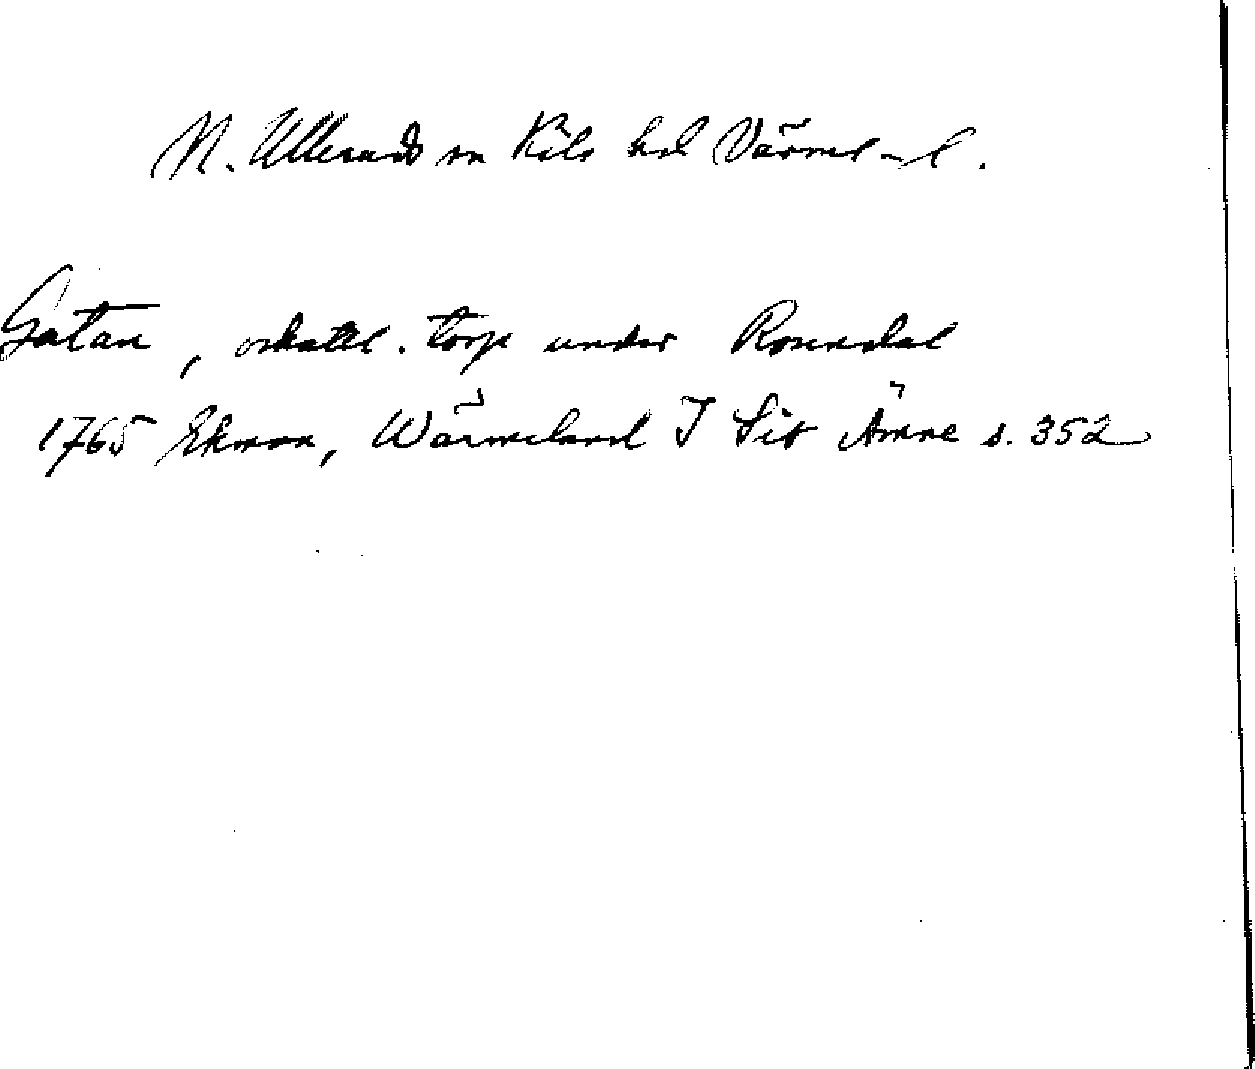 N. Ullerud sn Kils hd Värml. l.
Gatan, oskattl. torp under Rosendal
1765 Ekman, Wärmeland I Sit Ämne s. 352